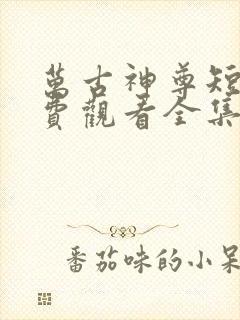 萬古神尊短
費觀看全集
番茄味的小呆